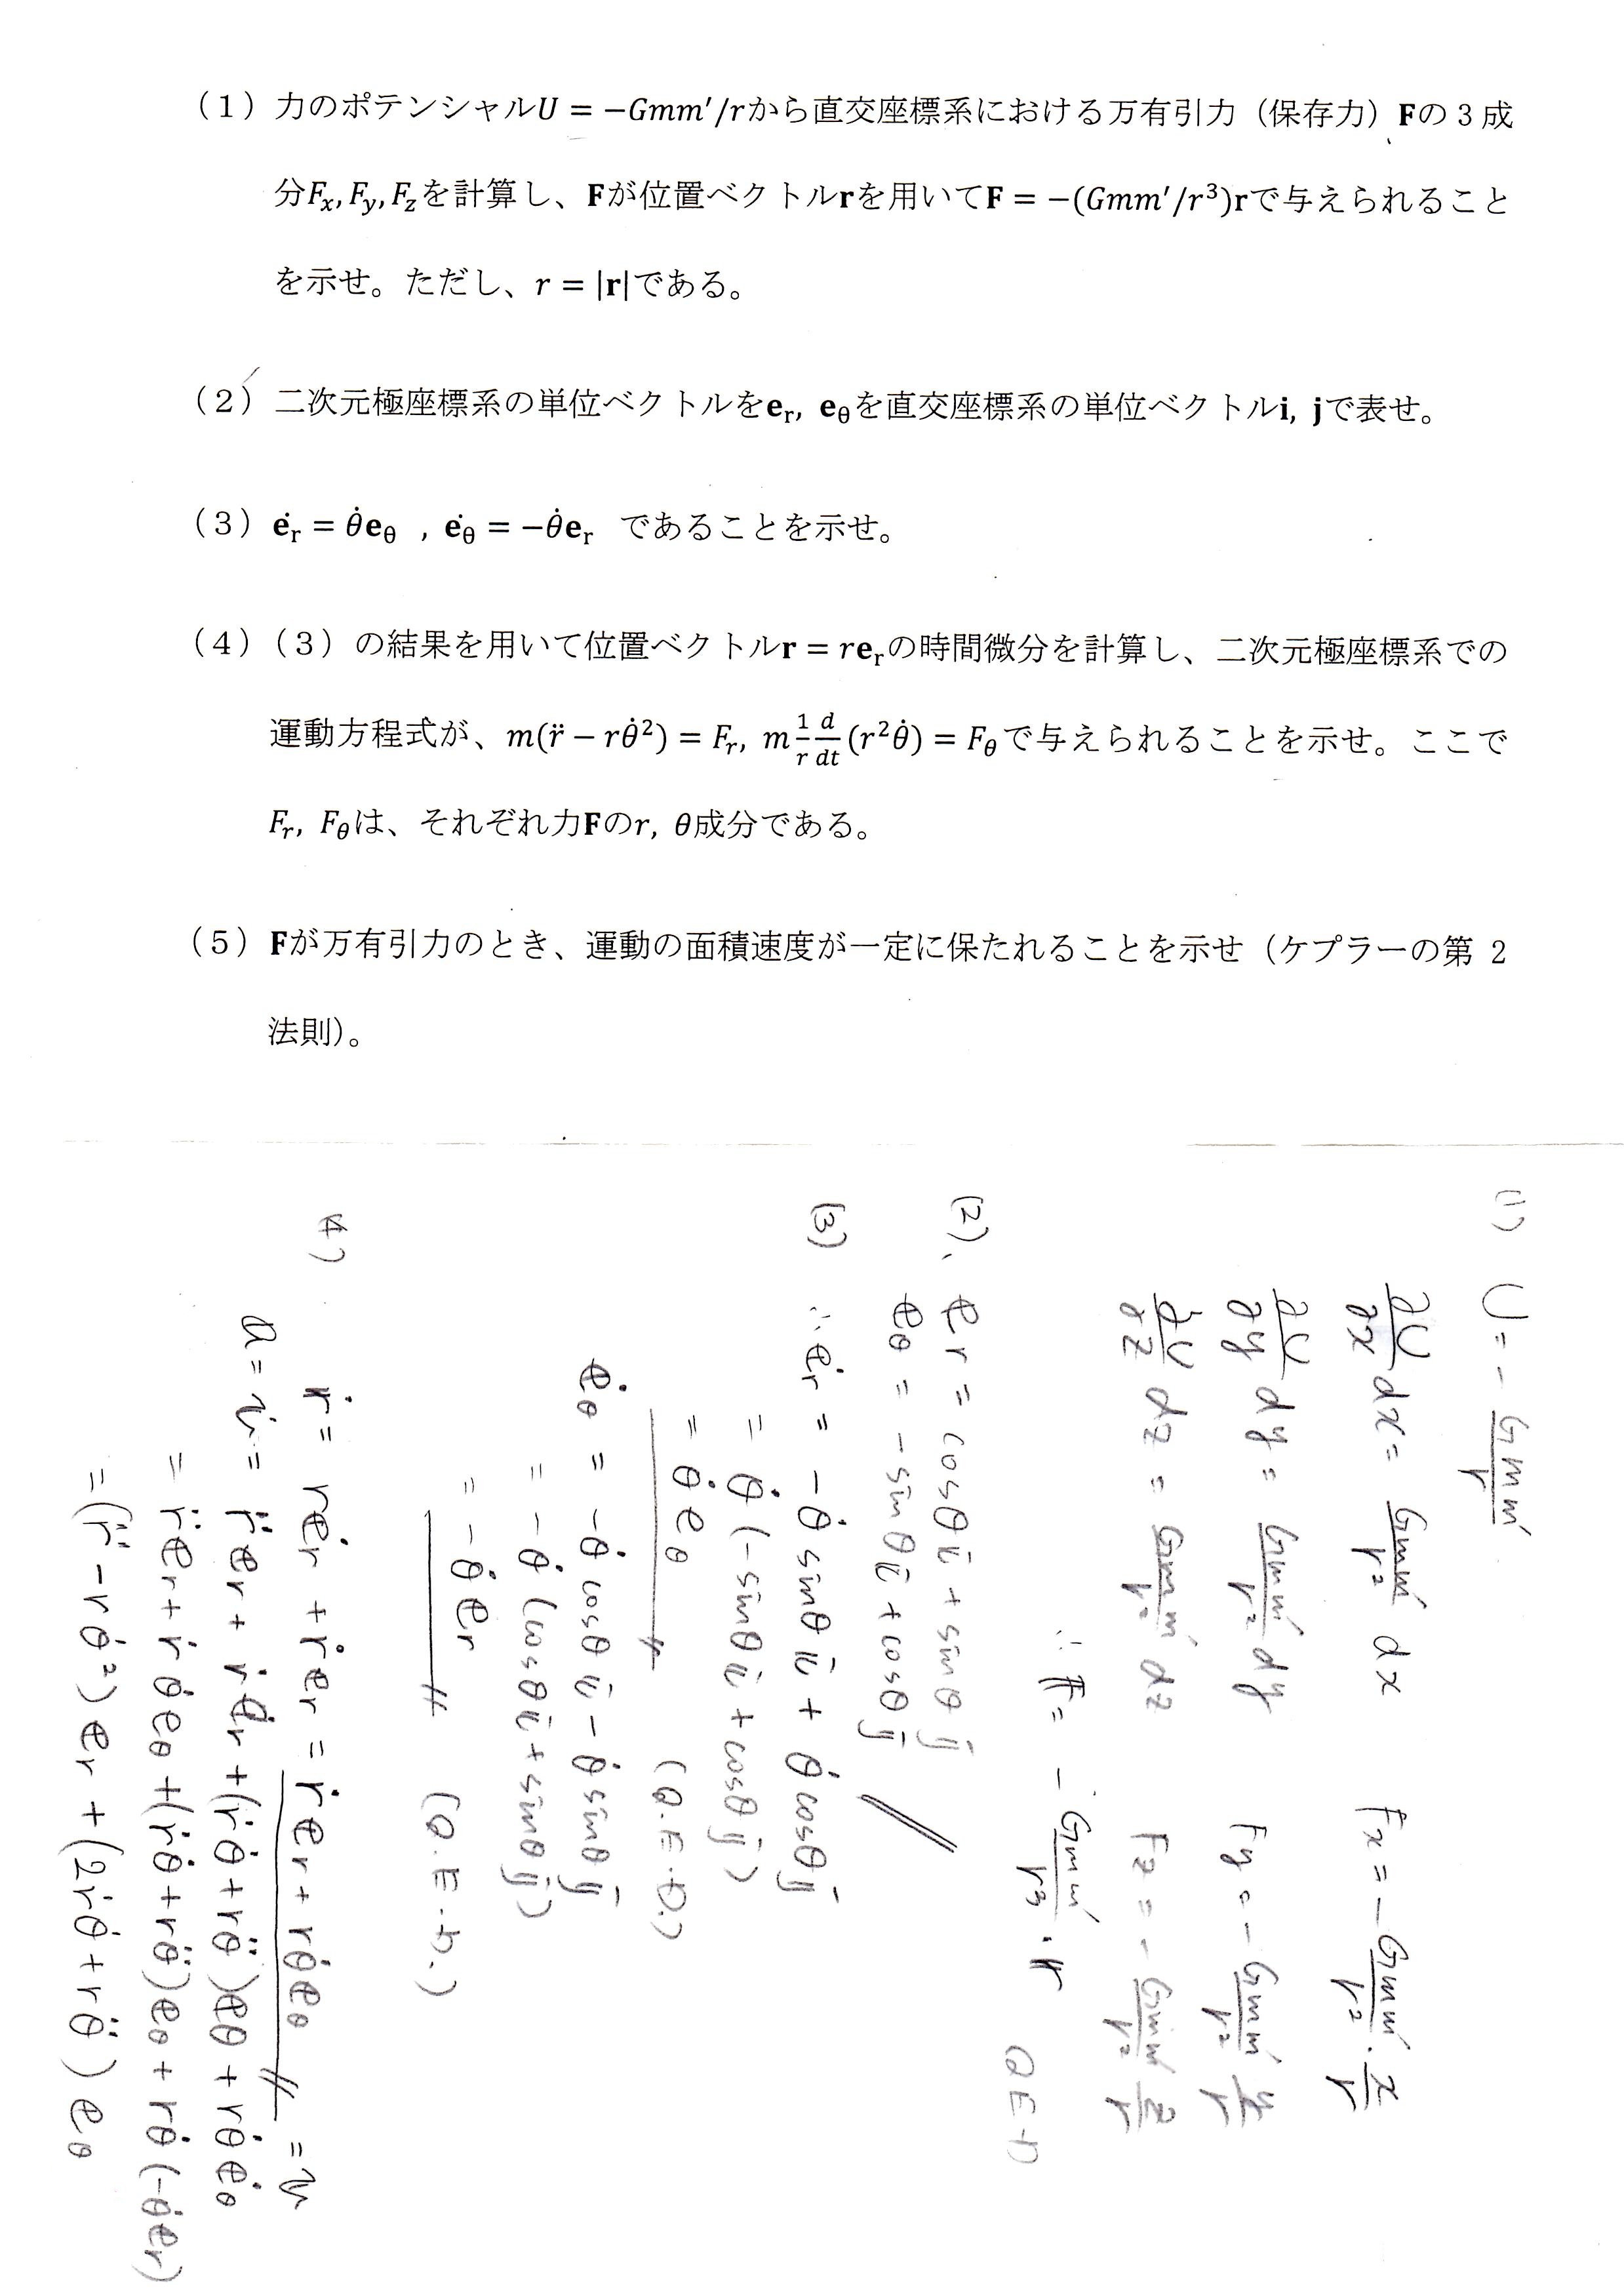 (1) 力のポテンシャルU = −Gmm′/rから直交座標系における万有引力（保存力）Fの3成
分Fx, Fy, Fzを計算し、Fが位置ベクトルrを用いてF = −(Gmm′/r³)rで与えられること
を示せ。ただし、r = |r|である。
(2) 二次元極座標系の単位ベクトルをe_r, e_θを直交座標系の単位ベクトルi, jで表せ。
(3) ė_r = θ̇e_θ , ė_θ = −θ̇e_r であることを示せ。
(4) (3) の結果を用いて位置ベクトルr = re_rの時間微分を計算し、二次元極座標系での
運動方程式が、m(r̈ − rθ̇²) = F_r, m 1/r d/dt (r²θ̇) = F_θで与えられることを示せ。ここで
F_r, F_θは、それぞれ力Fのr, θ成分である。
(5) Fが万有引力のとき、運動の面積速度が一定に保たれることを示せ（ケプラーの第2
法則）。
(1) U = − Gmm′/r
∂U/∂x dx = Gmm′/r² dx Fx = − Gmm′/r² · x/r
∂U/∂y dy = Gmm′/r² dy Fy = − Gmm′/r² y/r
∂U/∂z dz = Gmm′/r² dz Fz = − Gmm′/r² z/r
∴ F = − Gmm′/r³ · r Q E D
(2)、 e_r = cosθ i + sinθ j
e_θ = − sinθ i + cosθ j
(3) ∴ ė_r = − θ̇ sinθ i + θ̇ cosθ j
= θ̇ (− sinθ i + cosθ j)
= θ̇ e_θ (Q.E.D.)
ė_θ = − θ̇ cosθ i − θ̇ sinθ j
= − θ̇ (cosθ i + sinθ j)
= − θ̇ e_r (Q.E.D.)
(4) ṙ = rė_r + ṙe_r = ṙe_r + rθ̇e_θ = v
a = v̇ = r̈e_r + ṙė_r + (ṙθ̇ + rθ̈)e_θ + rθ̇ė_θ
= r̈e_r + ṙθ̇e_θ + (ṙθ̇ + rθ̈)e_θ + rθ̇(−θ̇e_r)
= (r̈ − rθ̇²)e_r + (2ṙθ̇ + rθ̈)e_θ